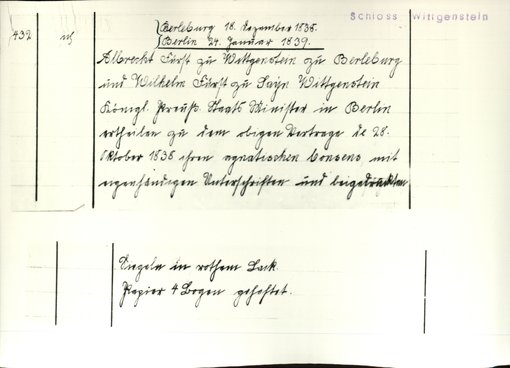 Schloss Wittgenstein
432
Berleburg 18. Dezember 1838.
Berlin 24. Januar 1839.
Albrecht Fürst zu Wittgenstein zu Berleburg
und Wilhelm Fürst zu Sayn Wittgenstein
Königl. Preuß. Staats Minister in Berlin
ertheilen zu dem obigen Vertrage de 28.
Oktober 1838 ihren agnatischen Consens mit
eigenhändigen Unterschriften und beigedrückten
Siegeln in rothem Lack.
Papier 4 Bogen geheftet.